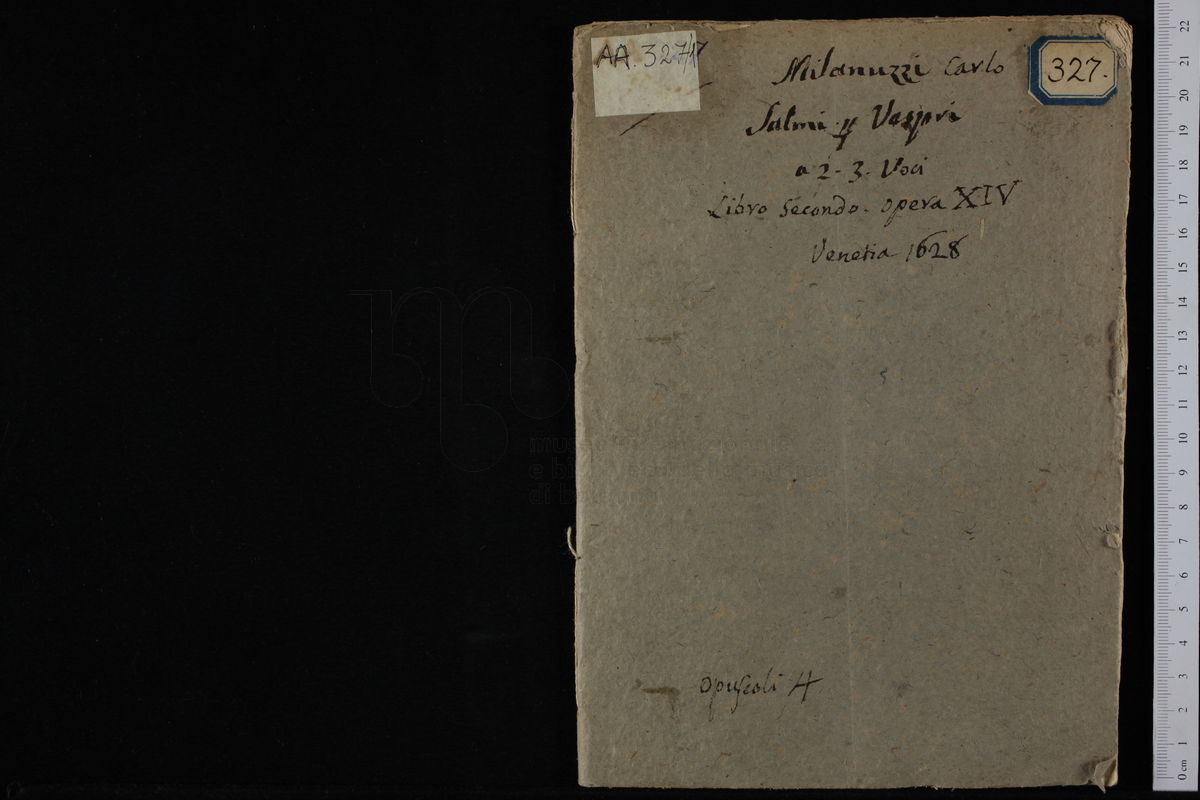 AA. 327/17
327.
Milanuzzi Carlo
Salmi p Vespri
a 2. 3. Voci
Libro Secondo. opera XIV
Venetia 1628
opuscoli 4
0 cm 1 2 3 4 5 6 7 8 9 10 11 12 13 14 15 16 17 18 19 20 21 22